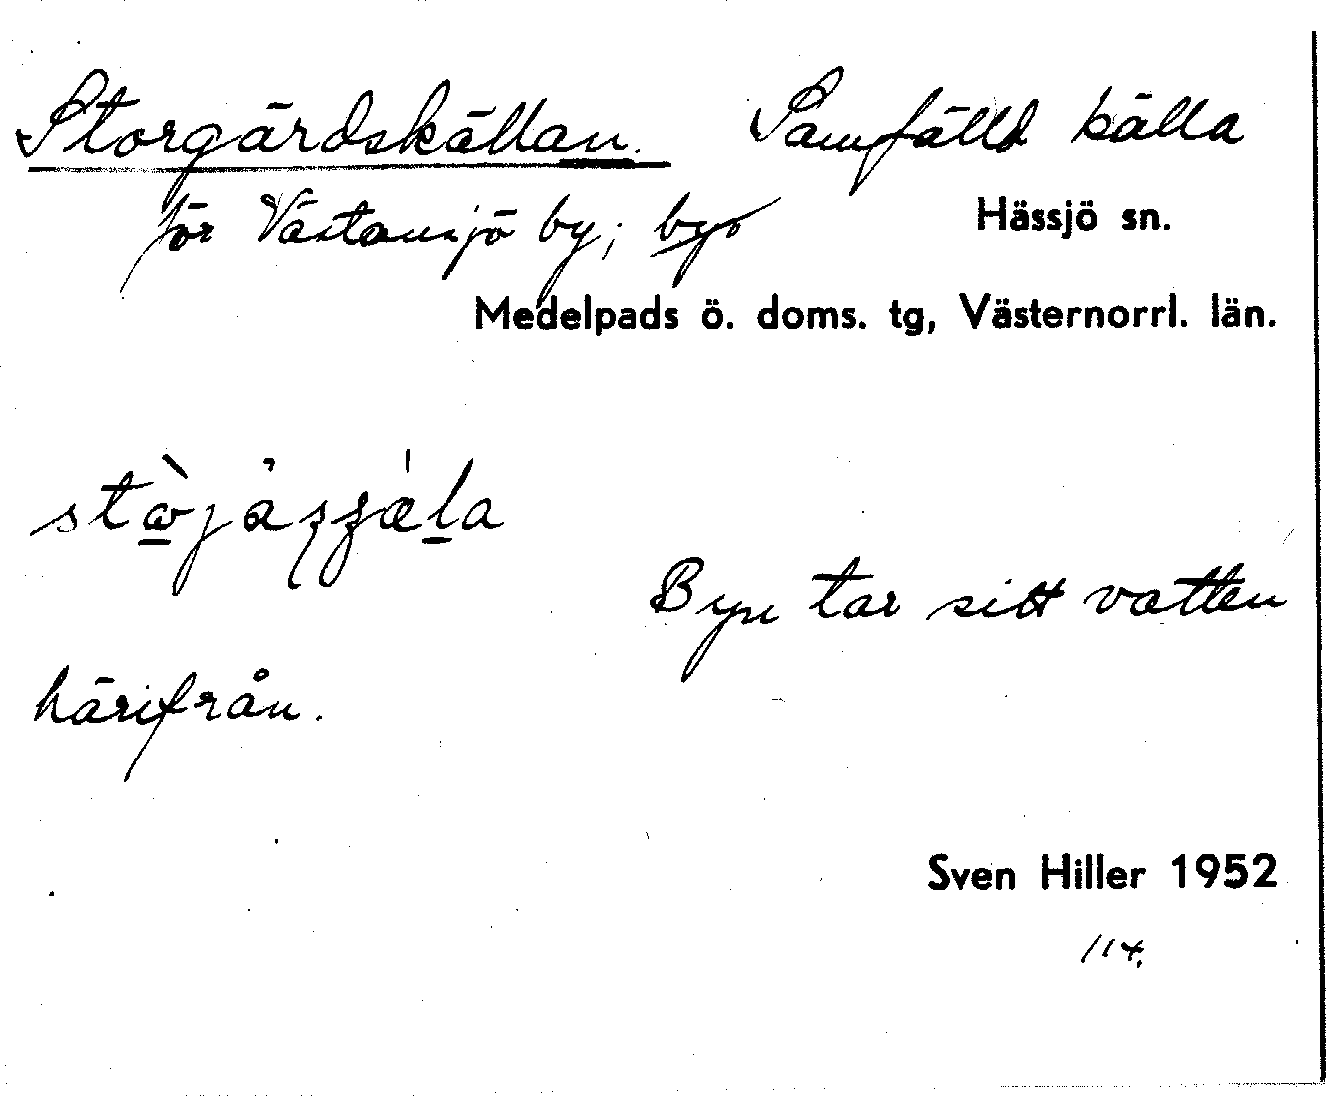 Storgärdskällan. Samfälld källa
för Västansjö by; Hässjö sn.
Medelpads ö. doms. tg, Västernorrl. län.
Byn tar sitt vatten
härifrån.
Sven Hiller 1952
114.